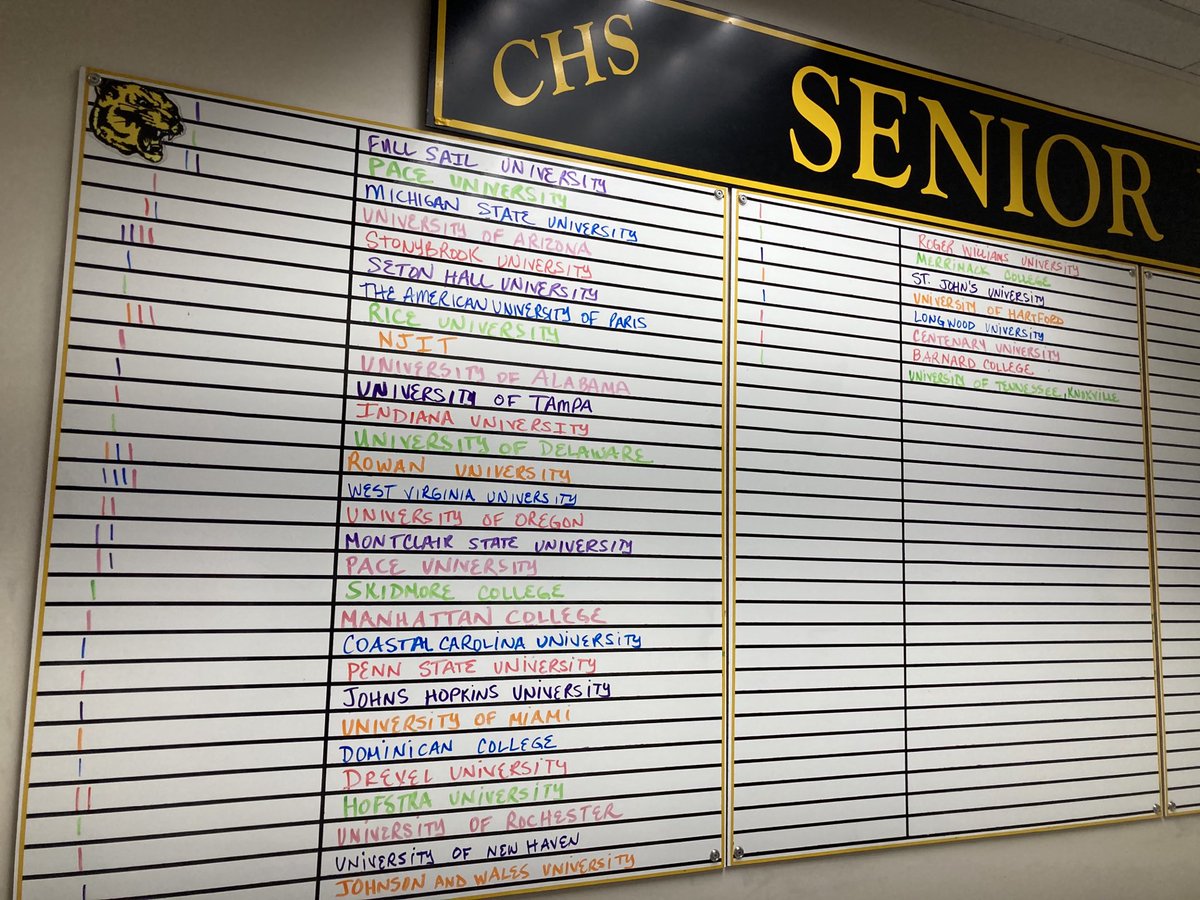 CHS
SENIOR
FULL SAIL UNIVERSITY
PACE UNIVERSITY
MICHIGAN STATE UNIVERSITY
UNIVERSITY OF ARIZONA
STONYBROOK UNIVERSITY
SETON HALL UNIVERSITY
THE AMERICAN UNIVERSITY OF PARIS
RICE UNIVERSITY
NJIT
UNIVERSITY OF ALABAMA
UNIVERSITY OF TAMPA
INDIANA UNIVERSITY
UNIVERSITY OF DELAWARE
ROWAN UNIVERSITY
WEST VIRGINIA UNIVERSITY
UNIVERSITY OF OREGON
MONTCLAIR STATE UNIVERSITY
PACE UNIVERSITY
SKIDMORE COLLEGE
MANHATTAN COLLEGE
COASTAL CAROLINA UNIVERSITY
PENN STATE UNIVERSITY
JOHNS HOPKINS UNIVERSITY
UNIVERSITY OF MIAMI
DOMINICAN COLLEGE
DREXEL UNIVERSITY
HOFSTRA UNIVERSITY
UNIVERSITY OF ROCHESTER
UNIVERSITY OF NEW HAVEN
JOHNSON AND WALES UNIVERSITY
ROGER WILLIANS UNIVERSITY
MERRIMACK COLLEGE
ST. JOHN'S UNIVERSITY
UNIVERSITY OF HARTFORD
LONGWOOD UNIVERSITY
CENTENARY UNIVERSITY
BARNARD COLLEGE
UNIVERSITY OF TENNESSEE, KNOXVILLE